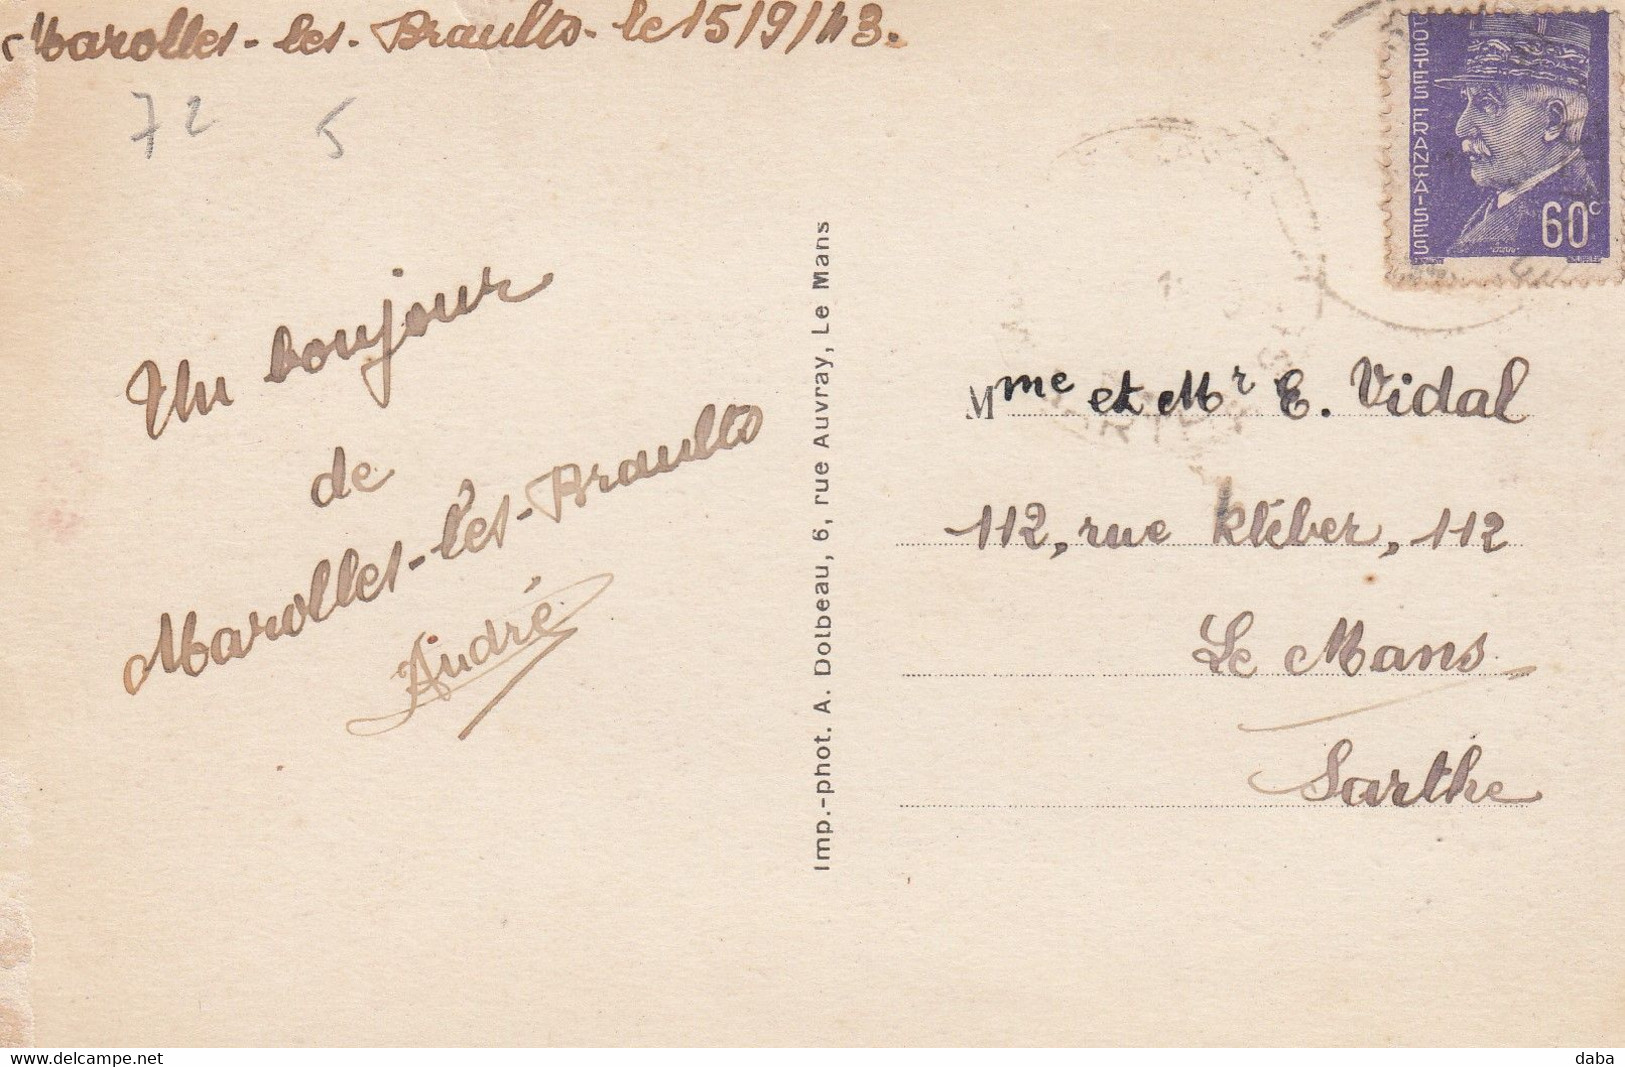 Marolles-les-Braults-le 15/9/43.
72 5
Un bonjour
de
Marolles-les-Braults
André
Imp.-phot. A. Dolbeau, 6, rue Auvray, Le Mans
POSTES FRANÇAISES
60c
Mme et Mr E. Vidal
112, rue Kléber, 112
Le Mans
Sarthe
www.delcampe.net
daba